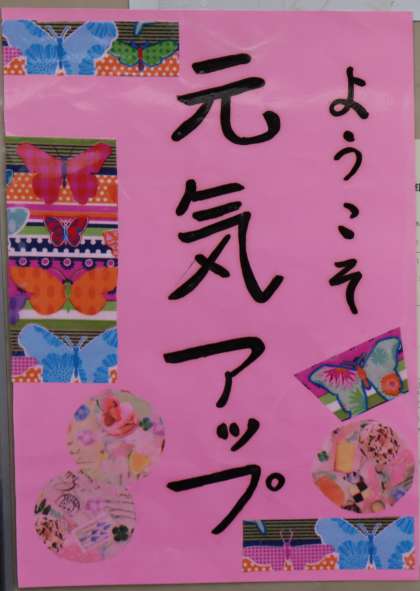 ようこそ
元気アップ